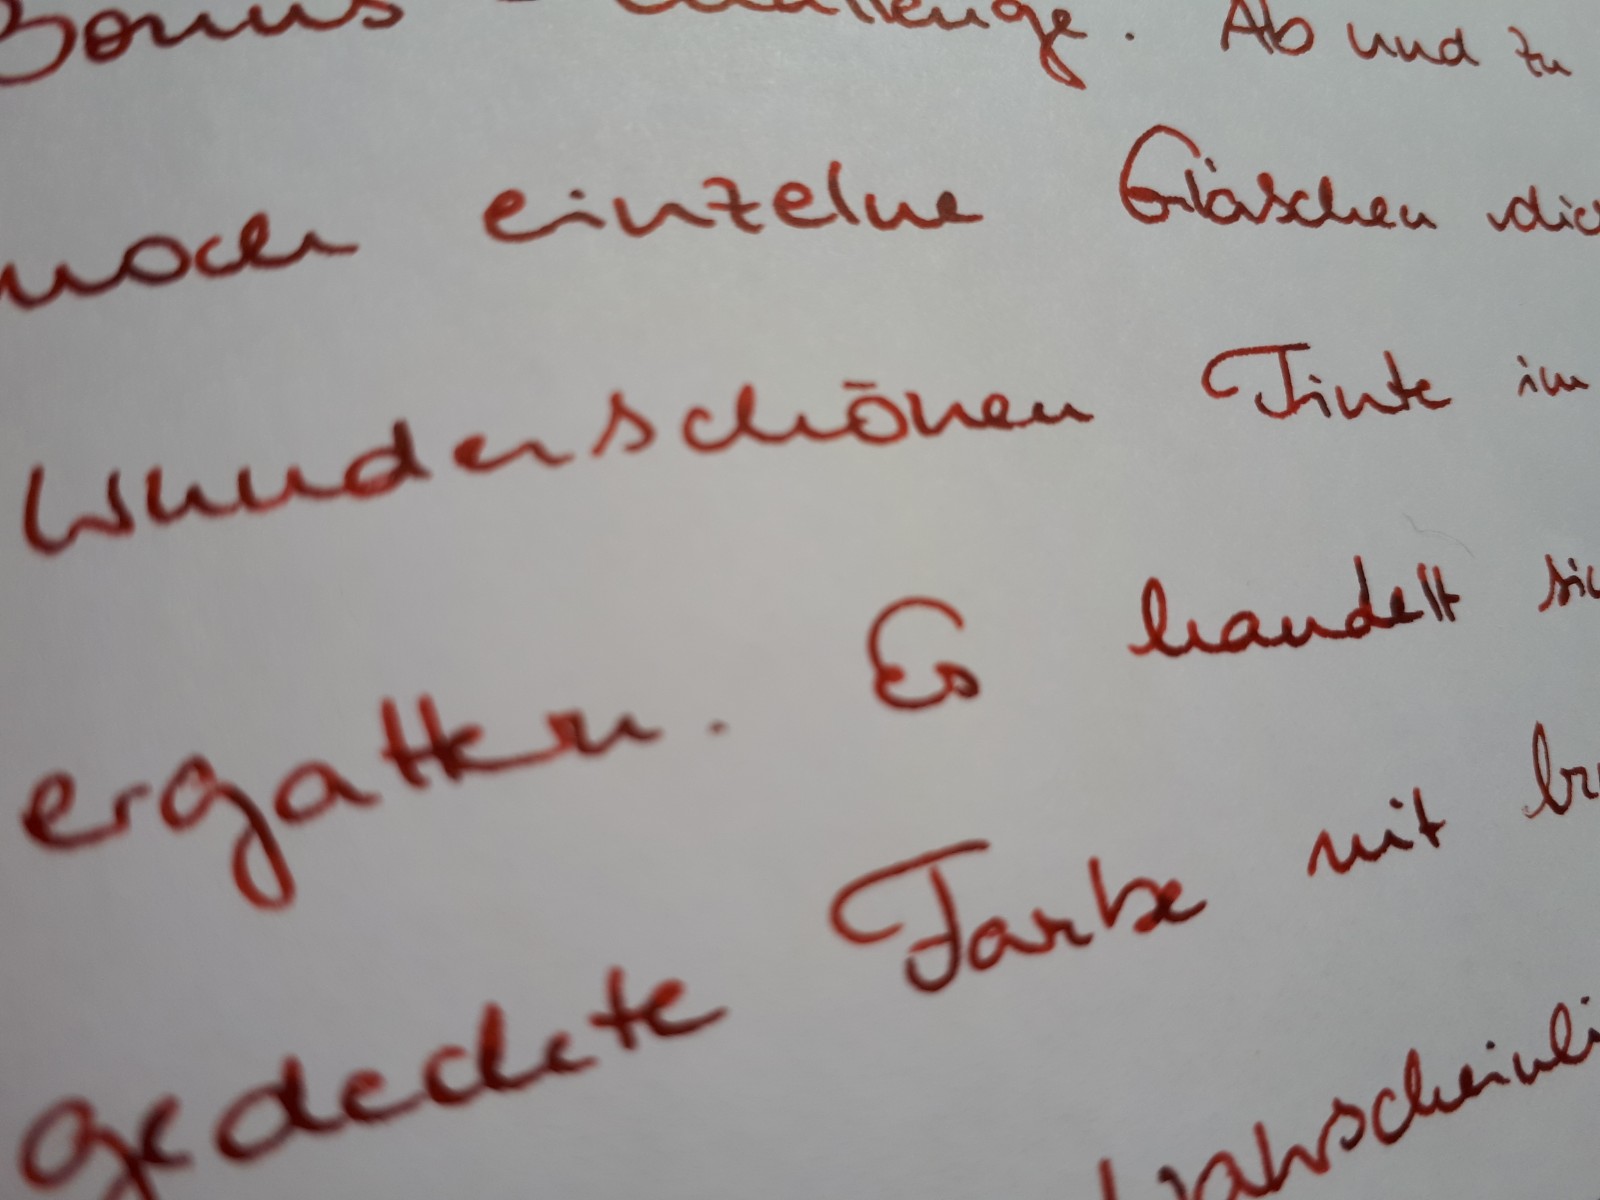 Bonus - Challenge. Ab und zu
noch einzelne Gläschen die
wunderschönen Tinte im
ergattern. Es handelt sic
gedeckte Farbe mit br
wahrscheinli